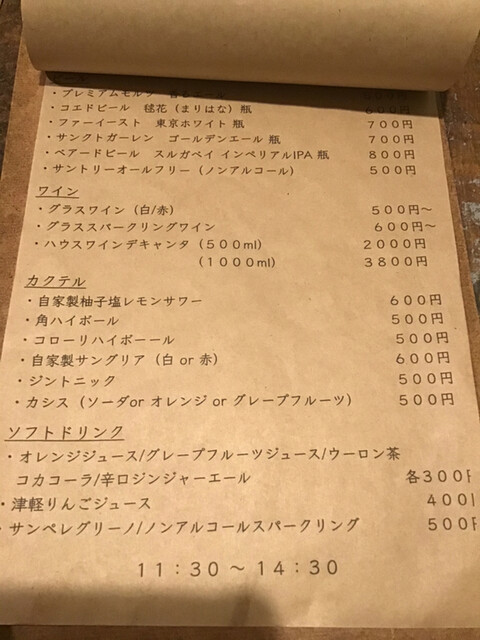 ・プレミアムモルツ
・コエドビール 毬花（まりはな）瓶 600円
・ファーイースト 東京ホワイト 瓶 700円
・サンクトガーレン ゴールデンエール 瓶 700円
・ベアードビール スルガベイ インペリアルIPA 瓶 800円
・サントリーオールフリー（ノンアルコール） 500円
ワイン
・グラスワイン（白/赤） 500円～
・グラススパークリングワイン 600円～
・ハウスワインデキャンタ（500ml） 2000円
（1000ml） 3800円
カクテル
・自家製柚子塩レモンサワー 600円
・角ハイボール 500円
・コローリハイボーール 500円
・自家製サングリア（白 or 赤） 600円
・ジントニック 500円
・カシス（ソーダor オレンジ or グレープフルーツ） 500円
ソフトドリンク
・オレンジジュース/グレープフルーツジュース/ウーロン茶
コカコーラ/辛口ジンジャーエール 各300円
・津軽りんごジュース 400
・サンペレグリーノ/ノンアルコールスパークリング 500円
11：30～14：30